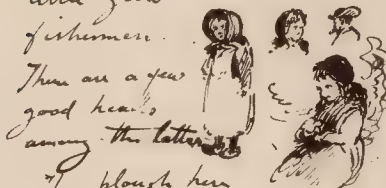 fishermen.
There are a few
good heads
among the latter
plough here